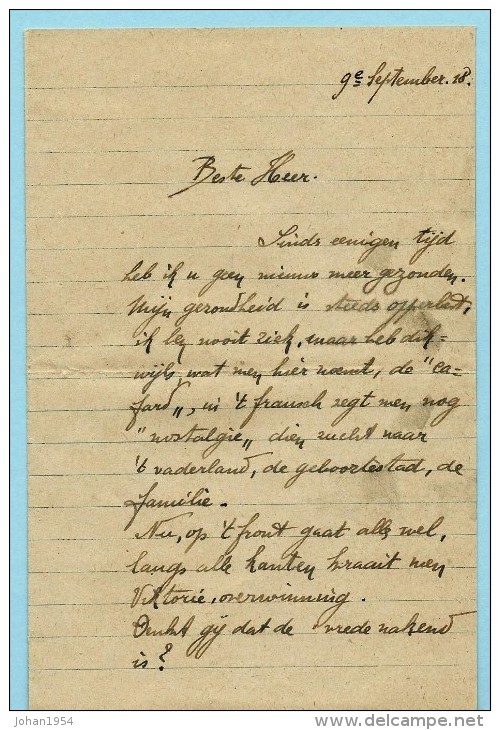 9e September. 18.
Beste Heer.
Sinds eenigen tijd
heb ik u geen nieuws meer gezonden.
Mijn gezondheid is steeds opperbest,
ik ben nooit ziek, maar heb dik-
wijls, wat men hier noemt, de "ca-
fard", in 't fransch zegt men nog
"nostalgie" dien zucht naar
't vaderland, de geboortestad, de
familie.
Nu, op 't front gaat alles wel,
langs alle kanten kraait men
Viktorie, overwinning.
Denkt gij dat de vrede nakend
is?
johan1954
delcampe.net